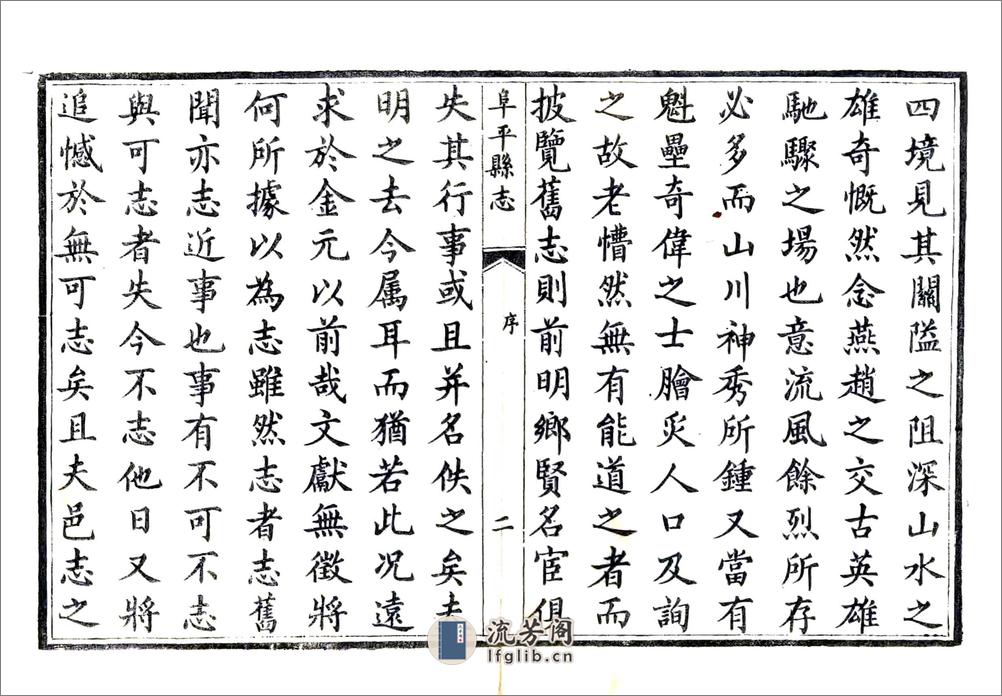 四境見其關隘之阻深山水之
雄奇慨然念燕趙之交古英雄
馳驟之場也意流風餘烈所存
必多而山川神秀所鍾又當有
魁壘奇偉之士膾炙人口及詢
之故老懵然無有能道之者而
披覽舊志則前明鄉賢名宦俱
阜平縣志
序
二
失其行事或且并名佚之矣夫
明之去今属耳而猶若此况遠
求於金元以前哉文獻無徵將
何所據以為志雖然志者志舊
聞亦志近事也事有不可不志
與可志者失今不志他日又將
追憾於無可志矣且夫邑志之
流芳阁
lfglib.cn